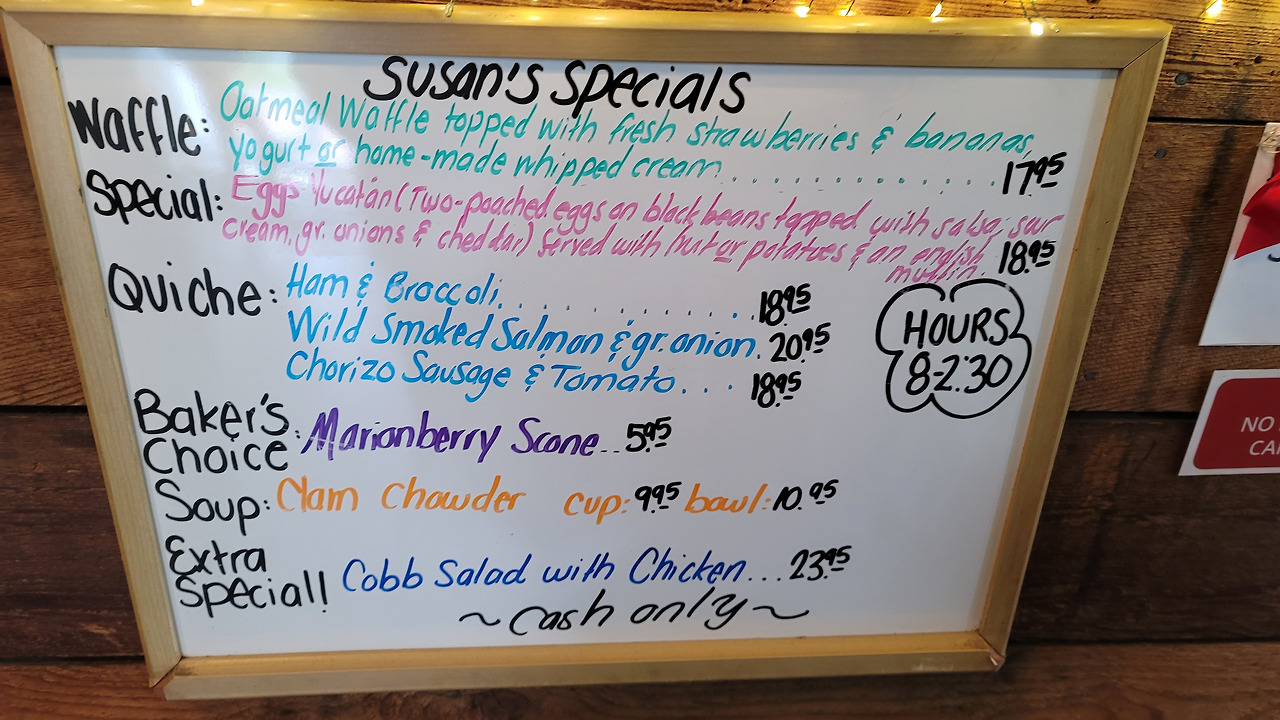 Susan's Specials
Waffle: Oatmeal Waffle topped with fresh strawberries & bananas,
yogurt or home-made whipped cream............. 17.95
Special: Eggs Yucatán (Two-poached eggs on black beans topped with salsa, sour
cream, gr. onions & cheddar) served with fruit or potatoes & an english
muffin. 18.95
Quiche: Ham & Broccoli.......... 18.95
Wild Smoked Salmon & gr. onion. 20.95
Chorizo Sausage & Tomato... 18.95
HOURS
8-2:30
Baker's
Choice: Marionberry Scone.. 5.95
Soup: Clam Chowder cup: 9.95 bowl: 10.95
Extra
Special! Cobb Salad with Chicken... 23.95
~ cash only ~
NO